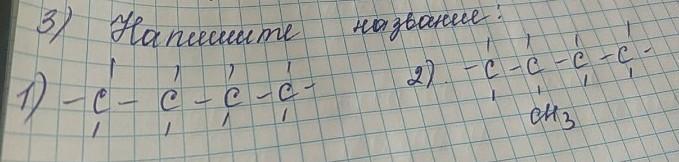 3) Напишите название:
1) -C-C-C-C-
2) -C-C-C-C-
CH3